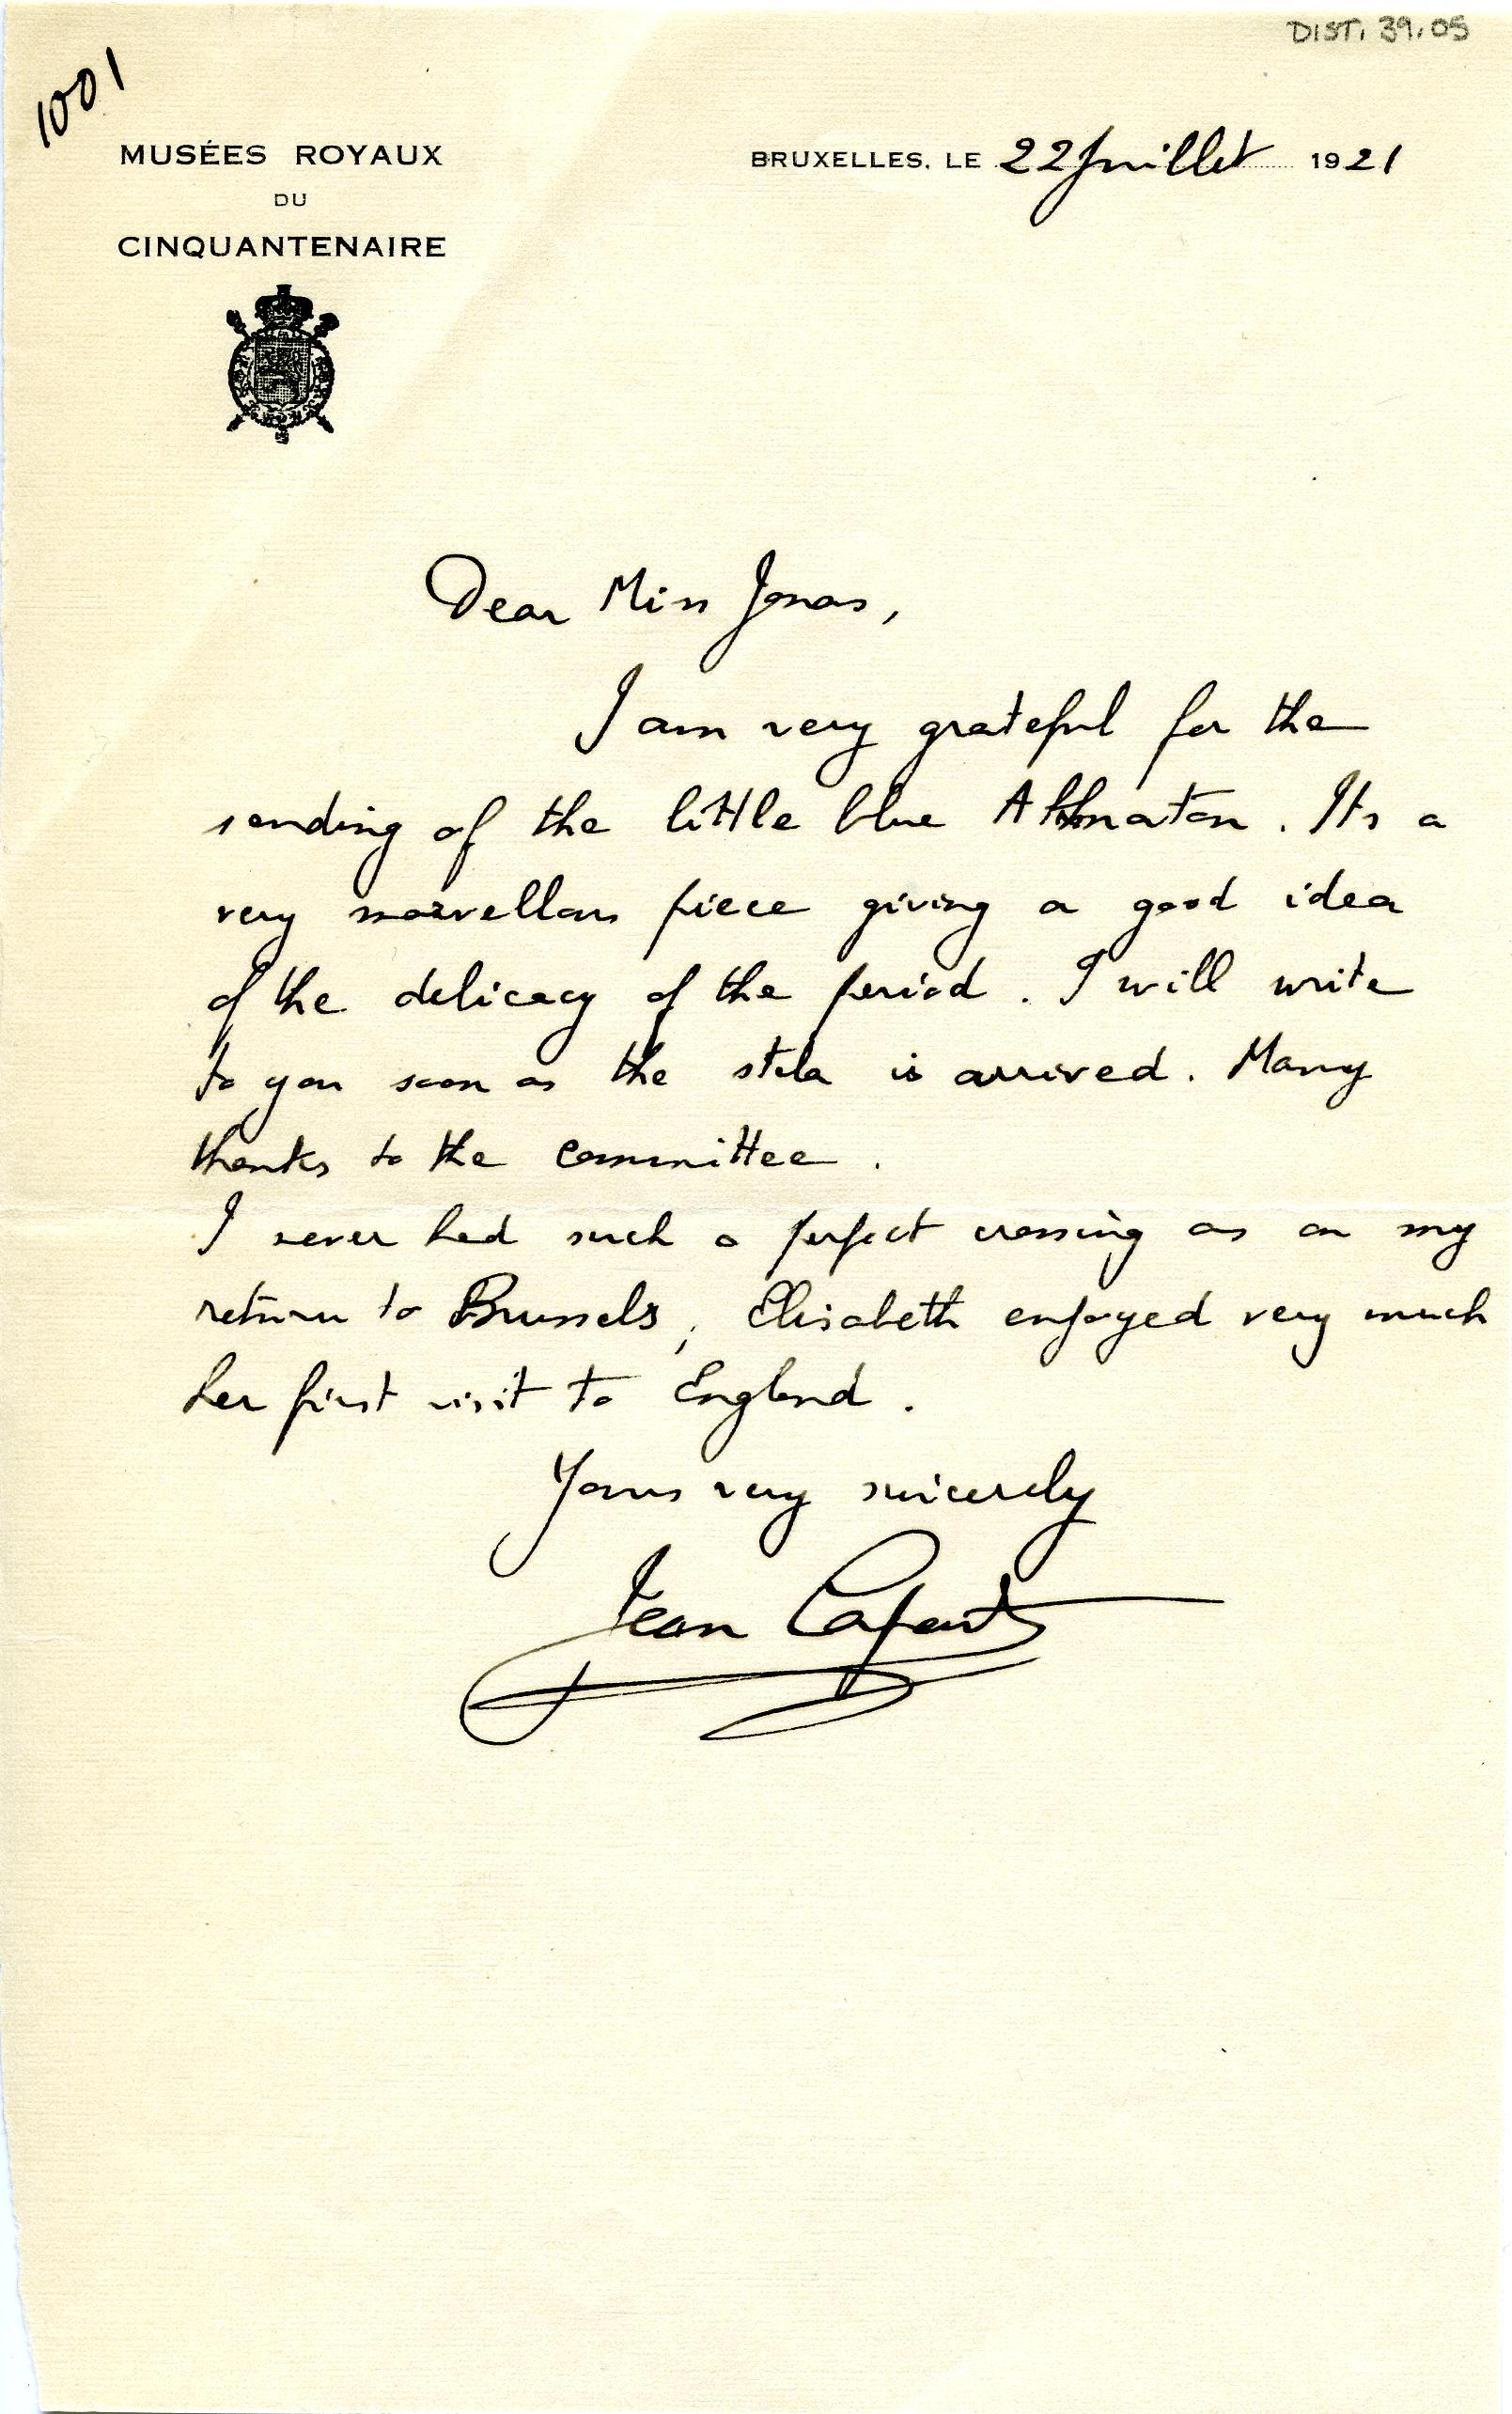 DIST. 39.05
1001
MUSÉES ROYAUX
DU
CINQUANTENAIRE
BRUXELLES, LE 22 Juillet 1921
Dear Miss Jonas,
I am very grateful for the
sending of the little blue Akhnaton. Its a
very marvellous piece giving a good idea
of the delicacy of the period. I will write
to you soon as the stela is arrived. Many
thanks to the committee.
I never had such a perfect crossing as on my
return to Brussels; Elisabeth enjoyed very much
her first visit to England.
Yours very sincerely
Jean Capart